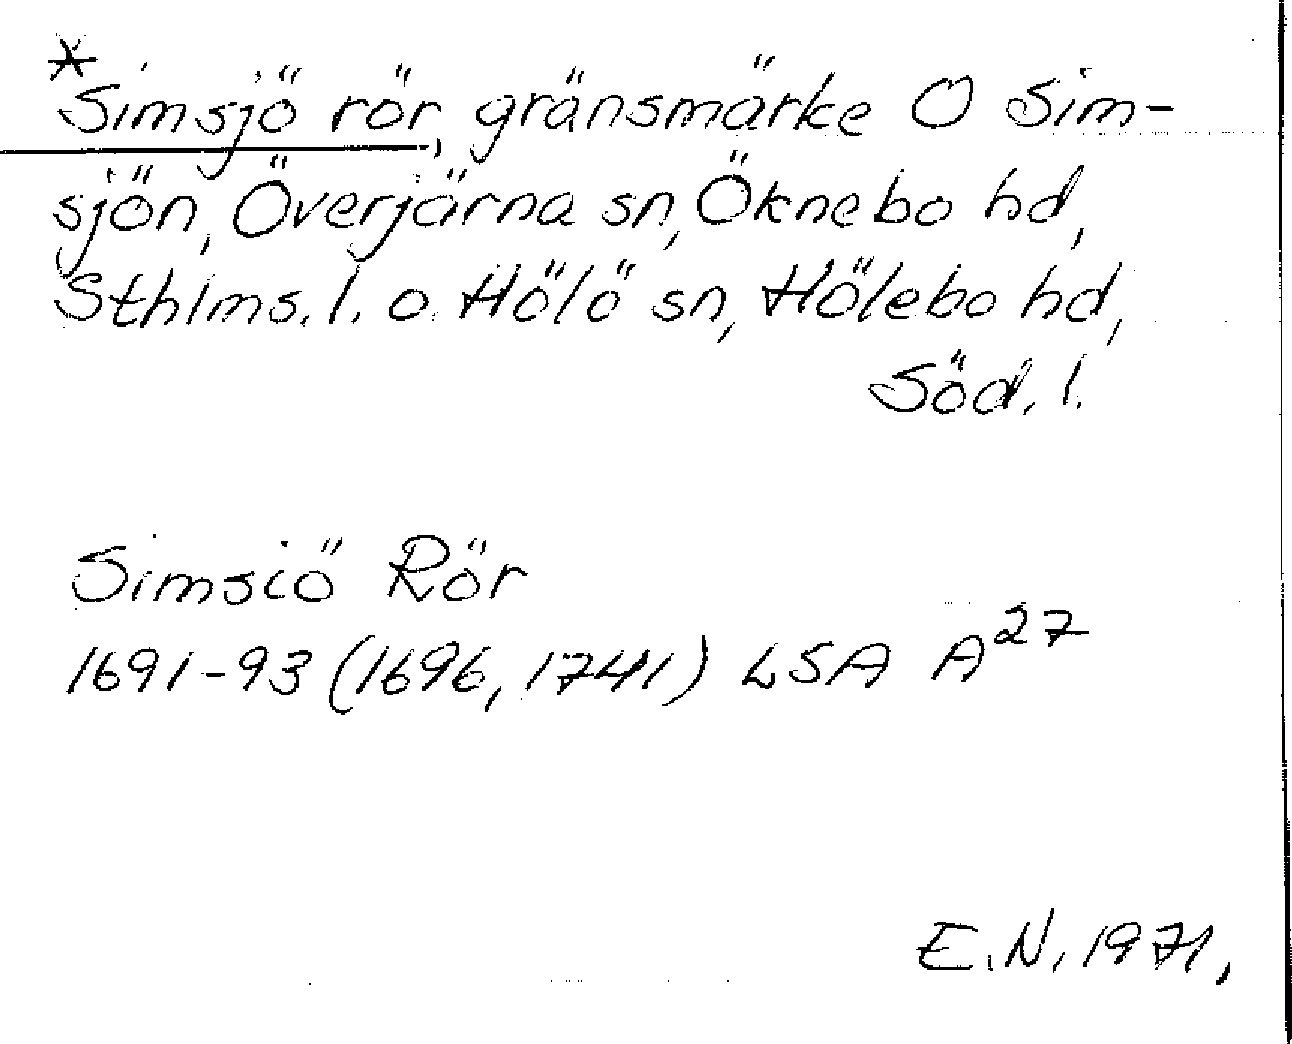 *Simsjö rör, gränsmärke O Sim-
sjön, Överjärna sn, Öknebo hd,
Sthlms. l. o. Hölö sn, Hölebo hd,
Söd. l.
Simsiö Rör
1691-93 (1696, 1741) LSA A²⁷
E.N. 1971.